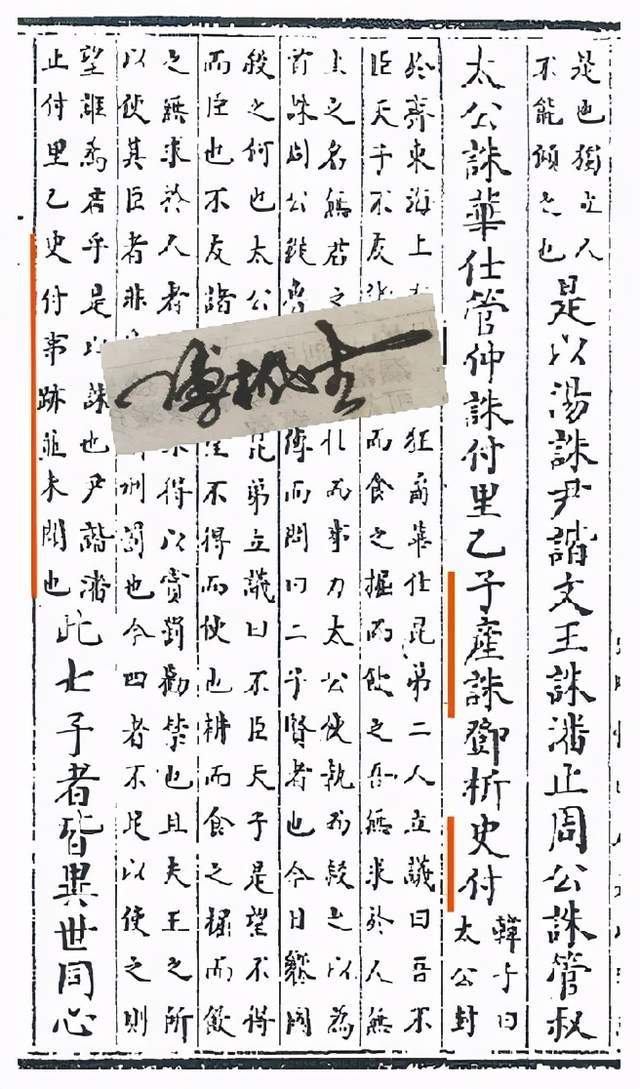 是也獨立人
不能傾之也
是以湯誅尹諧文王誅潘止周公誅管叔
太公誅華仕管仲誅付里乙子産誅鄧析史付
韓子曰
太公封
於齊東海上
狂矞華仕昆弟二人立議曰吾不
臣天子不友
而食之掘而飲之吾無求於人無
上之名無君之
仕而事力太公使執而殺之以為
首誅周公從魯
傳而問曰二子賢者也今日饗國
殺之何也太公
昆弟立議曰不臣天子是望不得
而臣也不友諸
望不得而使也耕而食之掘而飲
之無求於人者
不得以賞罰勸禁也且夫王之所
以使其臣者非
刑罰也今四者不足以使之則
望誰為君乎是以誅也尹諧潘
止付里乙史付事跡並未聞也
此七子者皆異世同心